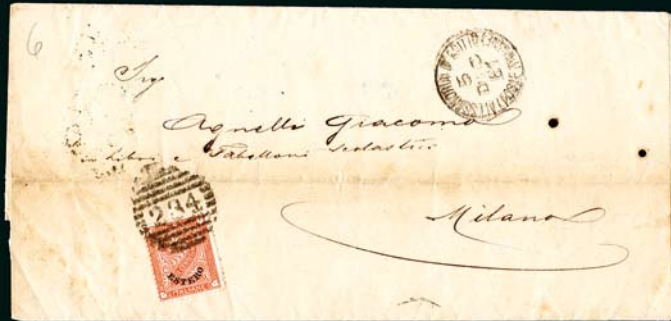 6
Sig
Agnelli Giacomo
Libri e Tabelloni Scolastici
Milano
234
ESTERO
ITALIANE